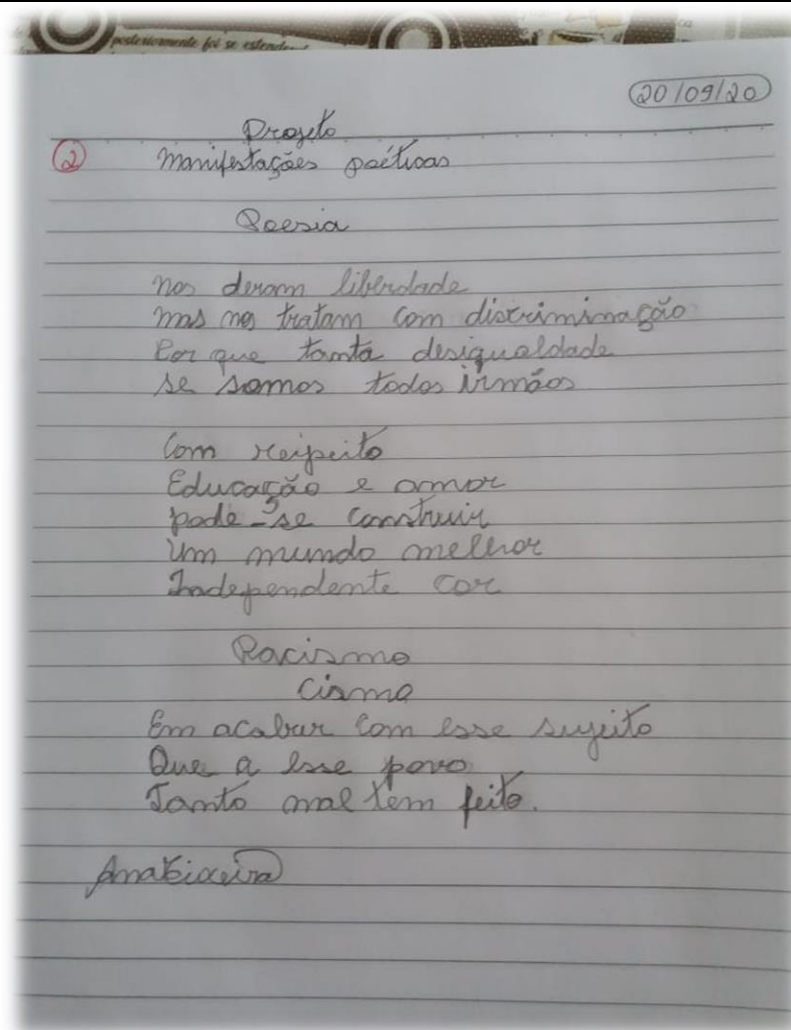 posteriormente foi se estenden
20/09/20
Projeto
2 Manifestações poéticas
Poesia
nos deram liberdade
mas nos tratam com discriminação
Por que tanta desigualdade
se somos todos irmãos
Com respeito
Educação e amor
pode-se construir
Um mundo melhor
Independente cor
Racismo
Cisma
Em acabar com esse sujeito
Que a esse povo
Tanto mal tem feito.